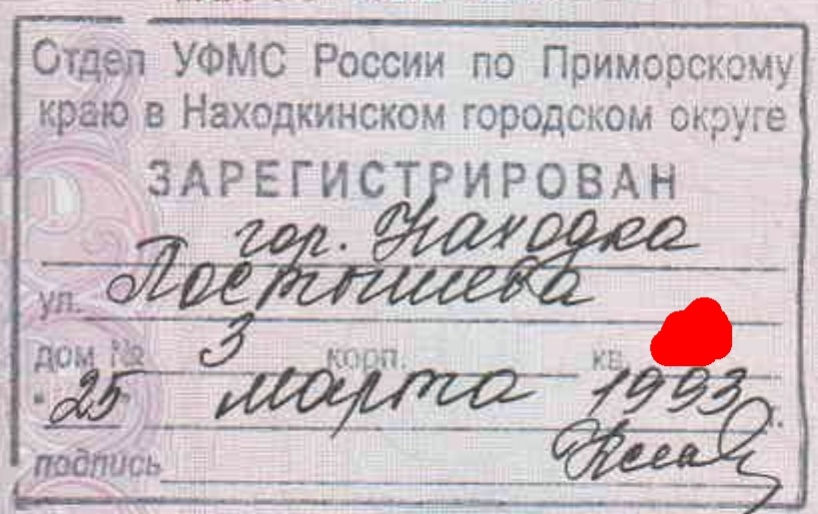 Отдел УФМС России по Приморскому
краю в Находкинском городском округе
ЗАРЕГИСТРИРОВАН
гор. Находка
ул. Постышева
дом № 3 корп. кв.
"25" марта 1993 г.
подпись